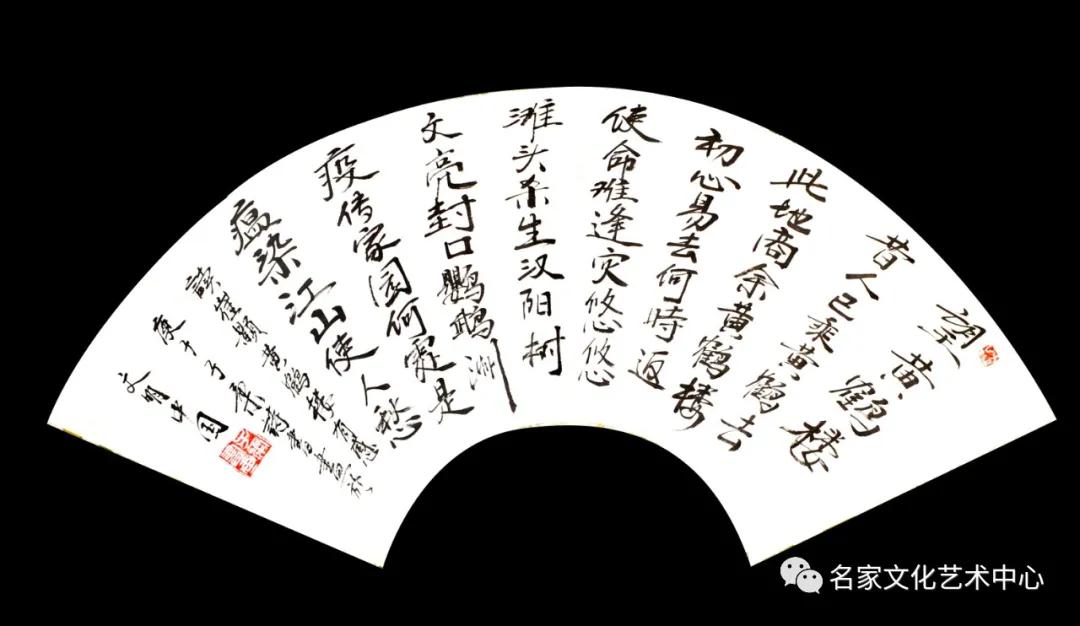 望黄鹤楼
昔人已乘黄鹤去
此地商余黄鹤楼
初心易去何時返
使命难逢灾悠悠
滩头杀生汉阳树
文亮封口鹦鹉洲
疫传家园何處是
瘟染江山使人愁
讀崔顥黄鹤楼有感
庚子
文明中国
名家文化艺术中心